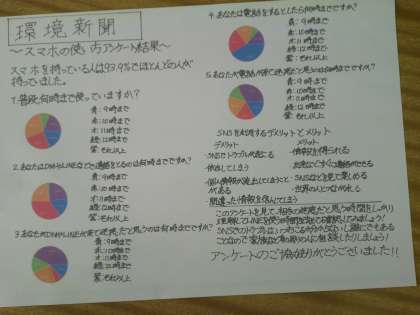 環境新聞
〜スマホの使い方アンケート結果〜
スマホを持っている人は93.9%でほとんどの人が
持っていました。
1.普段何時まで使っていますか？
青:9時まで
赤:10時まで
オ:11時まで
緑:12時まで
紫:それ以上
2.あなたはDMやLINEなどで連絡をとるのは何時までですか？
青:9時まで
赤:10時まで
オ:11時まで
緑:12時まで
紫:それ以上
3.あなたがDMやLINEが来て迷惑だと思うのは何時からですか？
青:9時まで
赤:10時まで
オ:11時まで
緑:12時まで
紫:それ以上
4.あなたは電話をするとしたら何時までですか？
青:9時まで
赤:10時まで
オ:11時まで
緑:12時まで
紫:それ以上
5.あなたが電話が来て迷惑だと思うのは何時からですか？
青:9時まで
赤:10時まで
オ:11時まで
緑:12時まで
紫:それ以上
SNSを利用するデメリットとメリット
デメリット
・SNSでトラブルが起こる
・依存してしまう
・個人情報が流出してしまうこと
がある
・間違った情報を信んでしまう
メリット
・情報を得られる
・友達とすぐに連絡ができる
・SNSなどを見て楽しめる
・世界の人とつながれる
このアンケートを見て、相手の迷惑だと思う時間をしっかり
SNSでのトラブルはいつおこるか分からないし誰にでもある
ことなので家族など身の周りの人に相談したりしましょう！
アンケートのご協力ありがとうございました!!